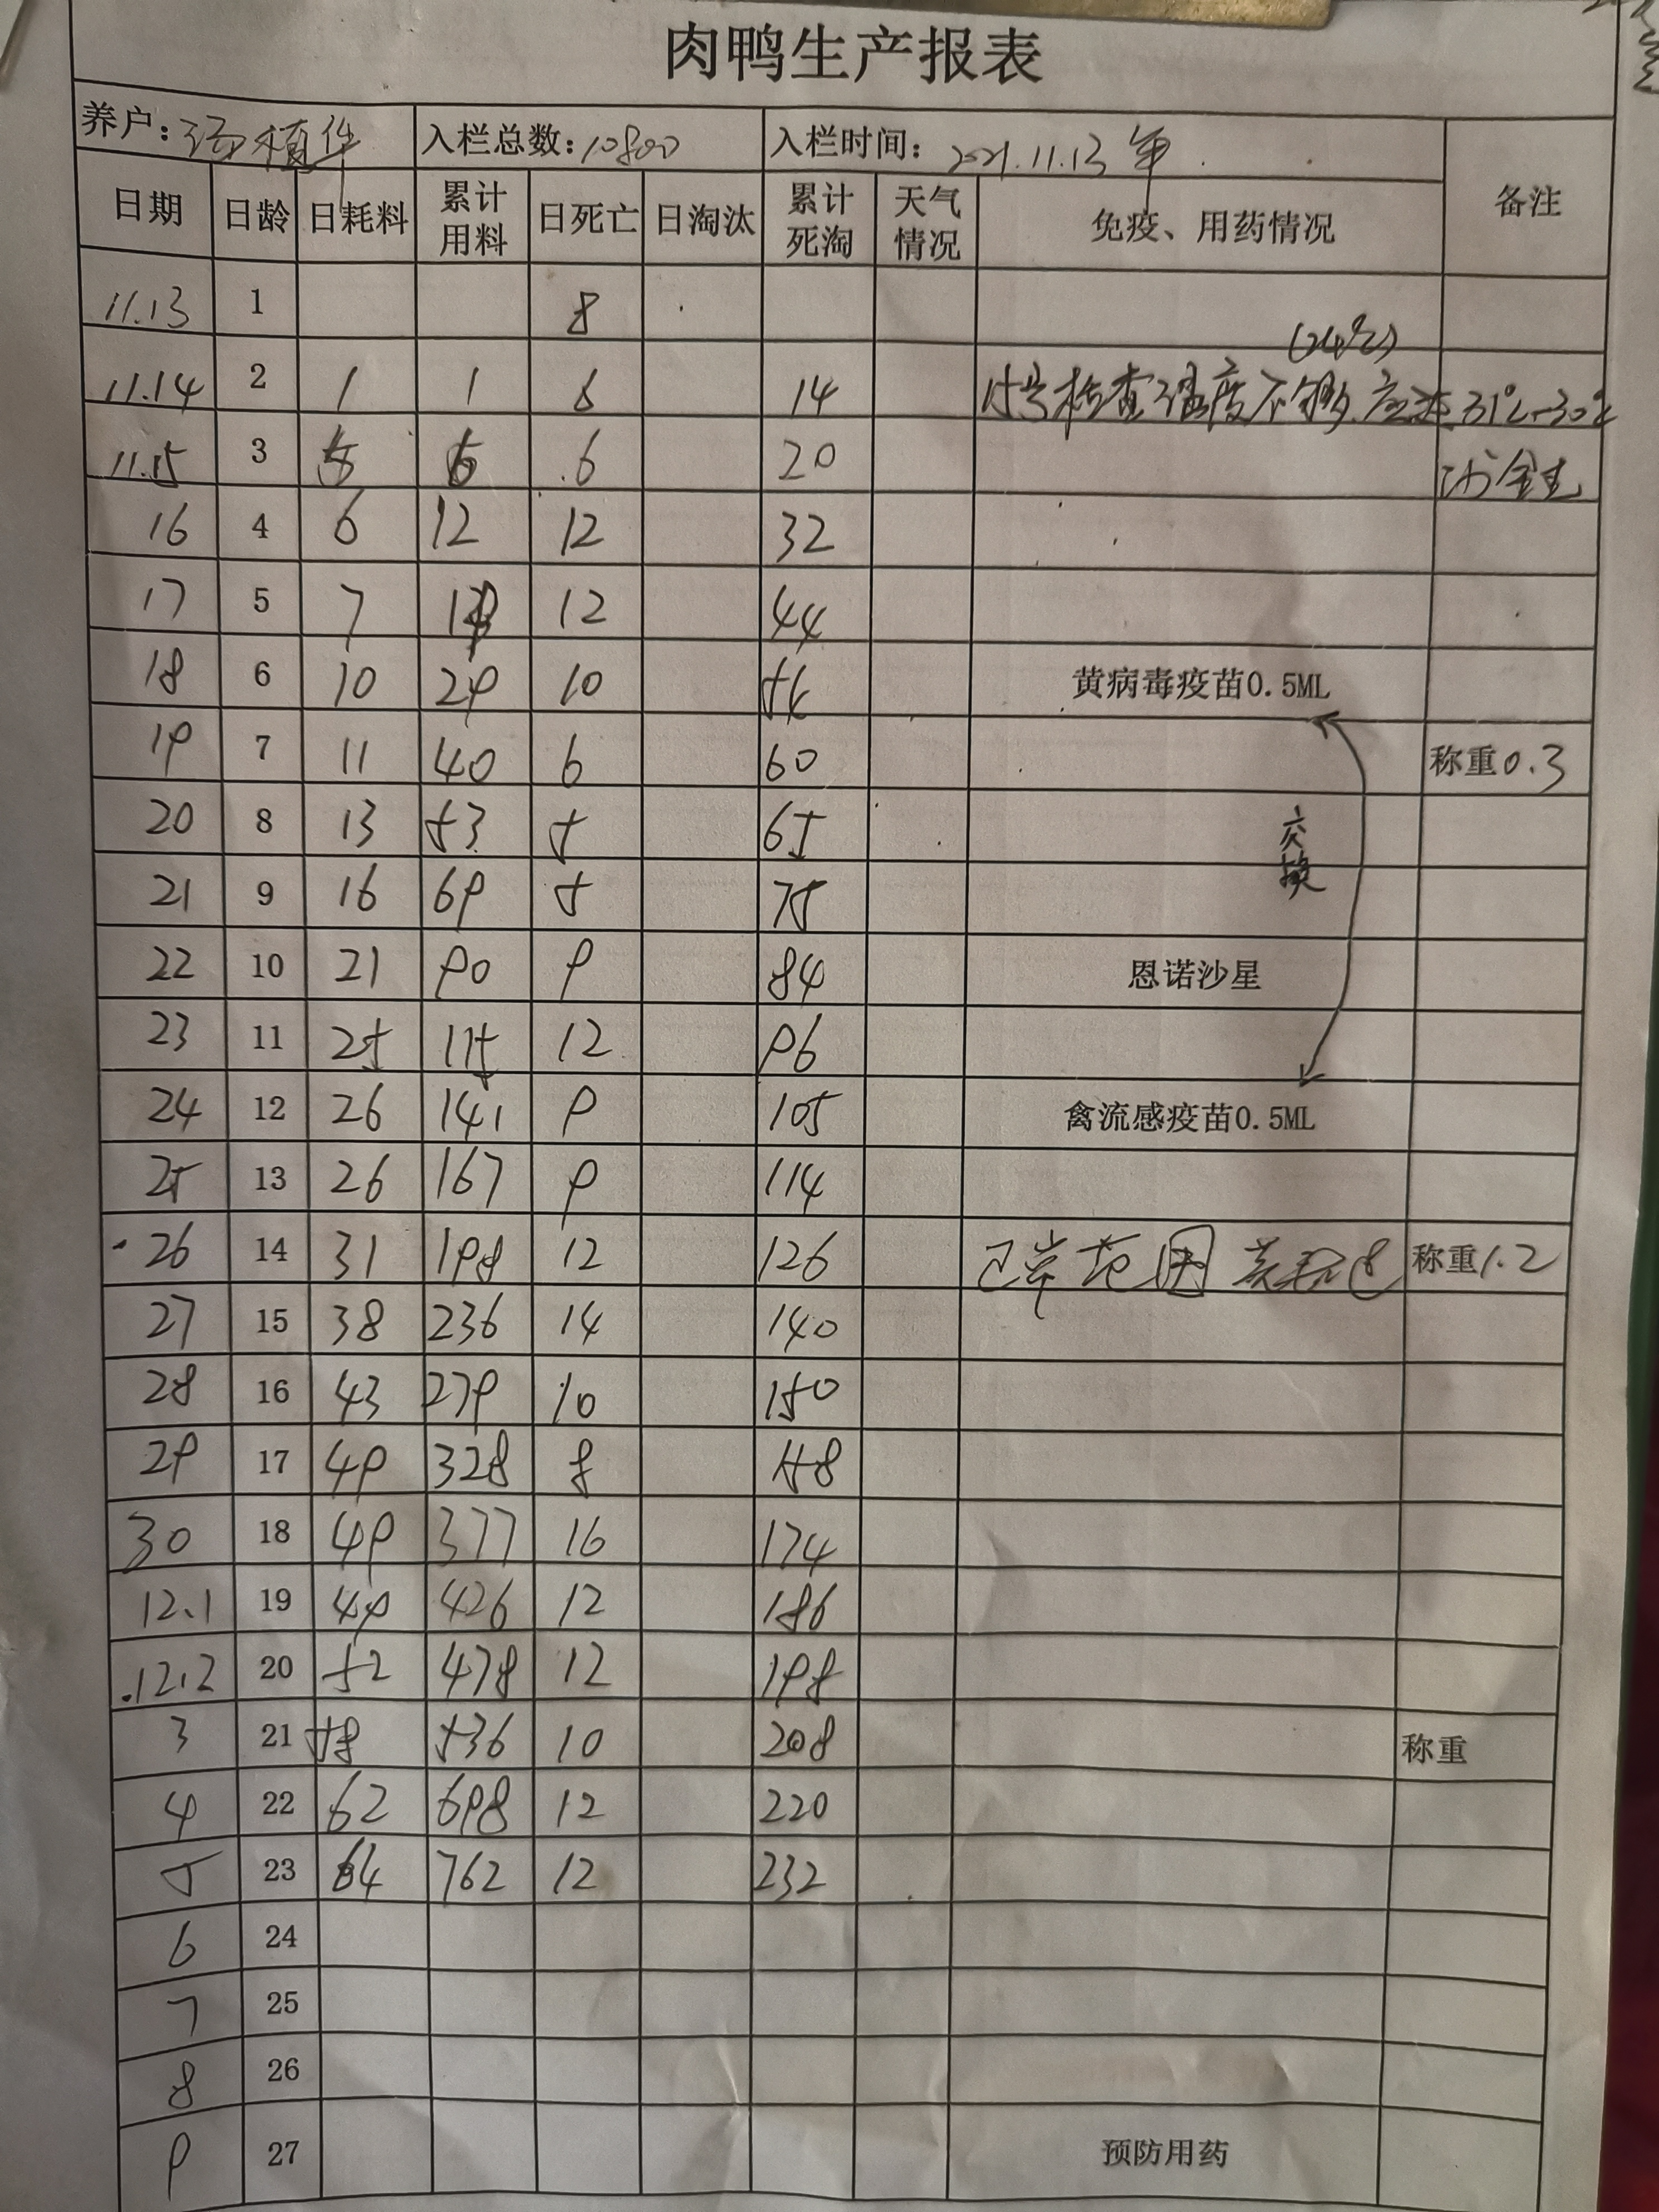 肉鸭生产报表
养户： 入栏总数：10800 入栏时间：2021.11.13
日期 日龄 日耗料 累计用料 日死亡 日淘汰 累计死淘 天气情况 免疫、用药情况 备注
11.13 1 8
(24℃)
11.14 2 1 1 6 14 检查温度不够 应达31℃-30℃
11.15 3 5 6 6 20
16 4 6 12 12 32
17 5 7 12 44
18 6 10 29 10 54 黄病毒疫苗0.5ML
19 7 11 40 6 60 称重0.3
20 8 13 53 5 65 交换
21 9 16 69 5 75
22 10 21 90 9 84 恩诺沙星
23 11 25 115 12 96
24 12 26 141 9 105 禽流感疫苗0.5ML
25 13 26 167 9 114
26 14 31 198 12 126 称重1.2
27 15 38 236 14 140
28 16 43 279 10 150
29 17 49 328 8 158
30 18 49 377 16 174
12.1 19 49 426 12 186
12.2 20 52 478 12 198
3 21 58 536 10 208 称重
4 22 62 698 12 220
5 23 64 762 12 232
6 24
7 25
8 26
9 27 预防用药